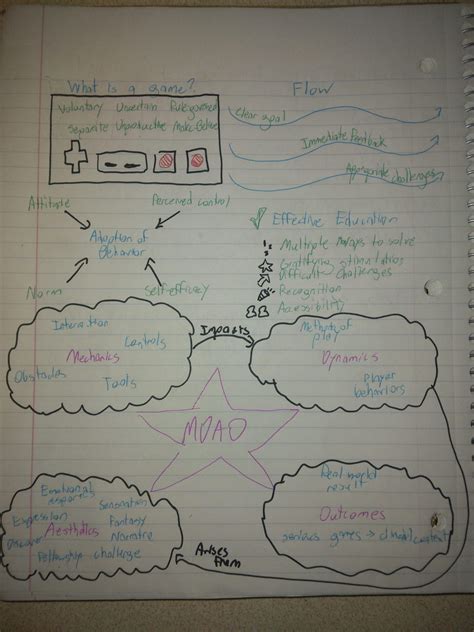 What is a game?
Voluntary Uncertain Rule governed
Separate Unproductive Make-Believe
Flow
Clear goal
Immediate Feedback
Appropriate challenges
Attitude
Perceived control
Adoption of
Behavior
Norm
Self-efficacy
Effective Education
Multiple ways to solve
Gratifying stimulation
Difficult challenges
Recognition
Accessibility
Interaction
Controls
Mechanics
Obstacles
Tools
Impacts
Methods of
play
Dynamics
Player
behaviors
MDAO
Emotional
Sensation
Expression
Fantasy
Aesthetics
Narrative
Fellowship
challenge
Arises
from
Real-world
result
Outcomes
serious games →